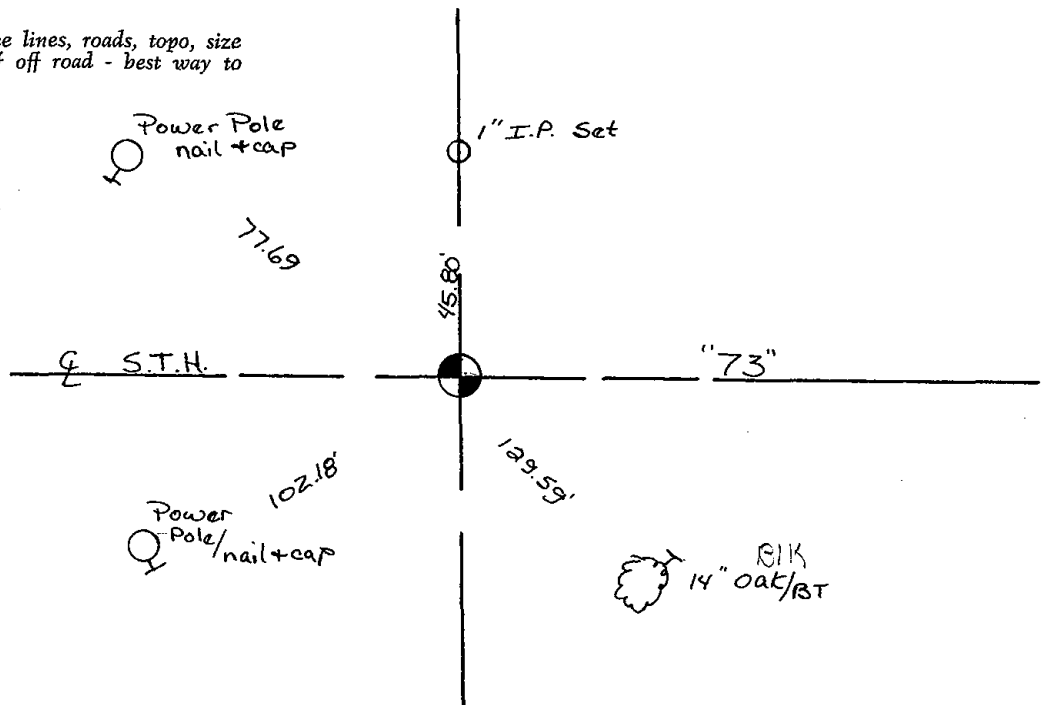 e lines, roads, topo, size
off road - best way to
Power Pole
nail + cap
1" I.P. Set
77.69
45.80'
℄ S.T.H.
"73"
102.18'
129.59'
Power
Pole/nail + cap
Blk
14" Oak/BT